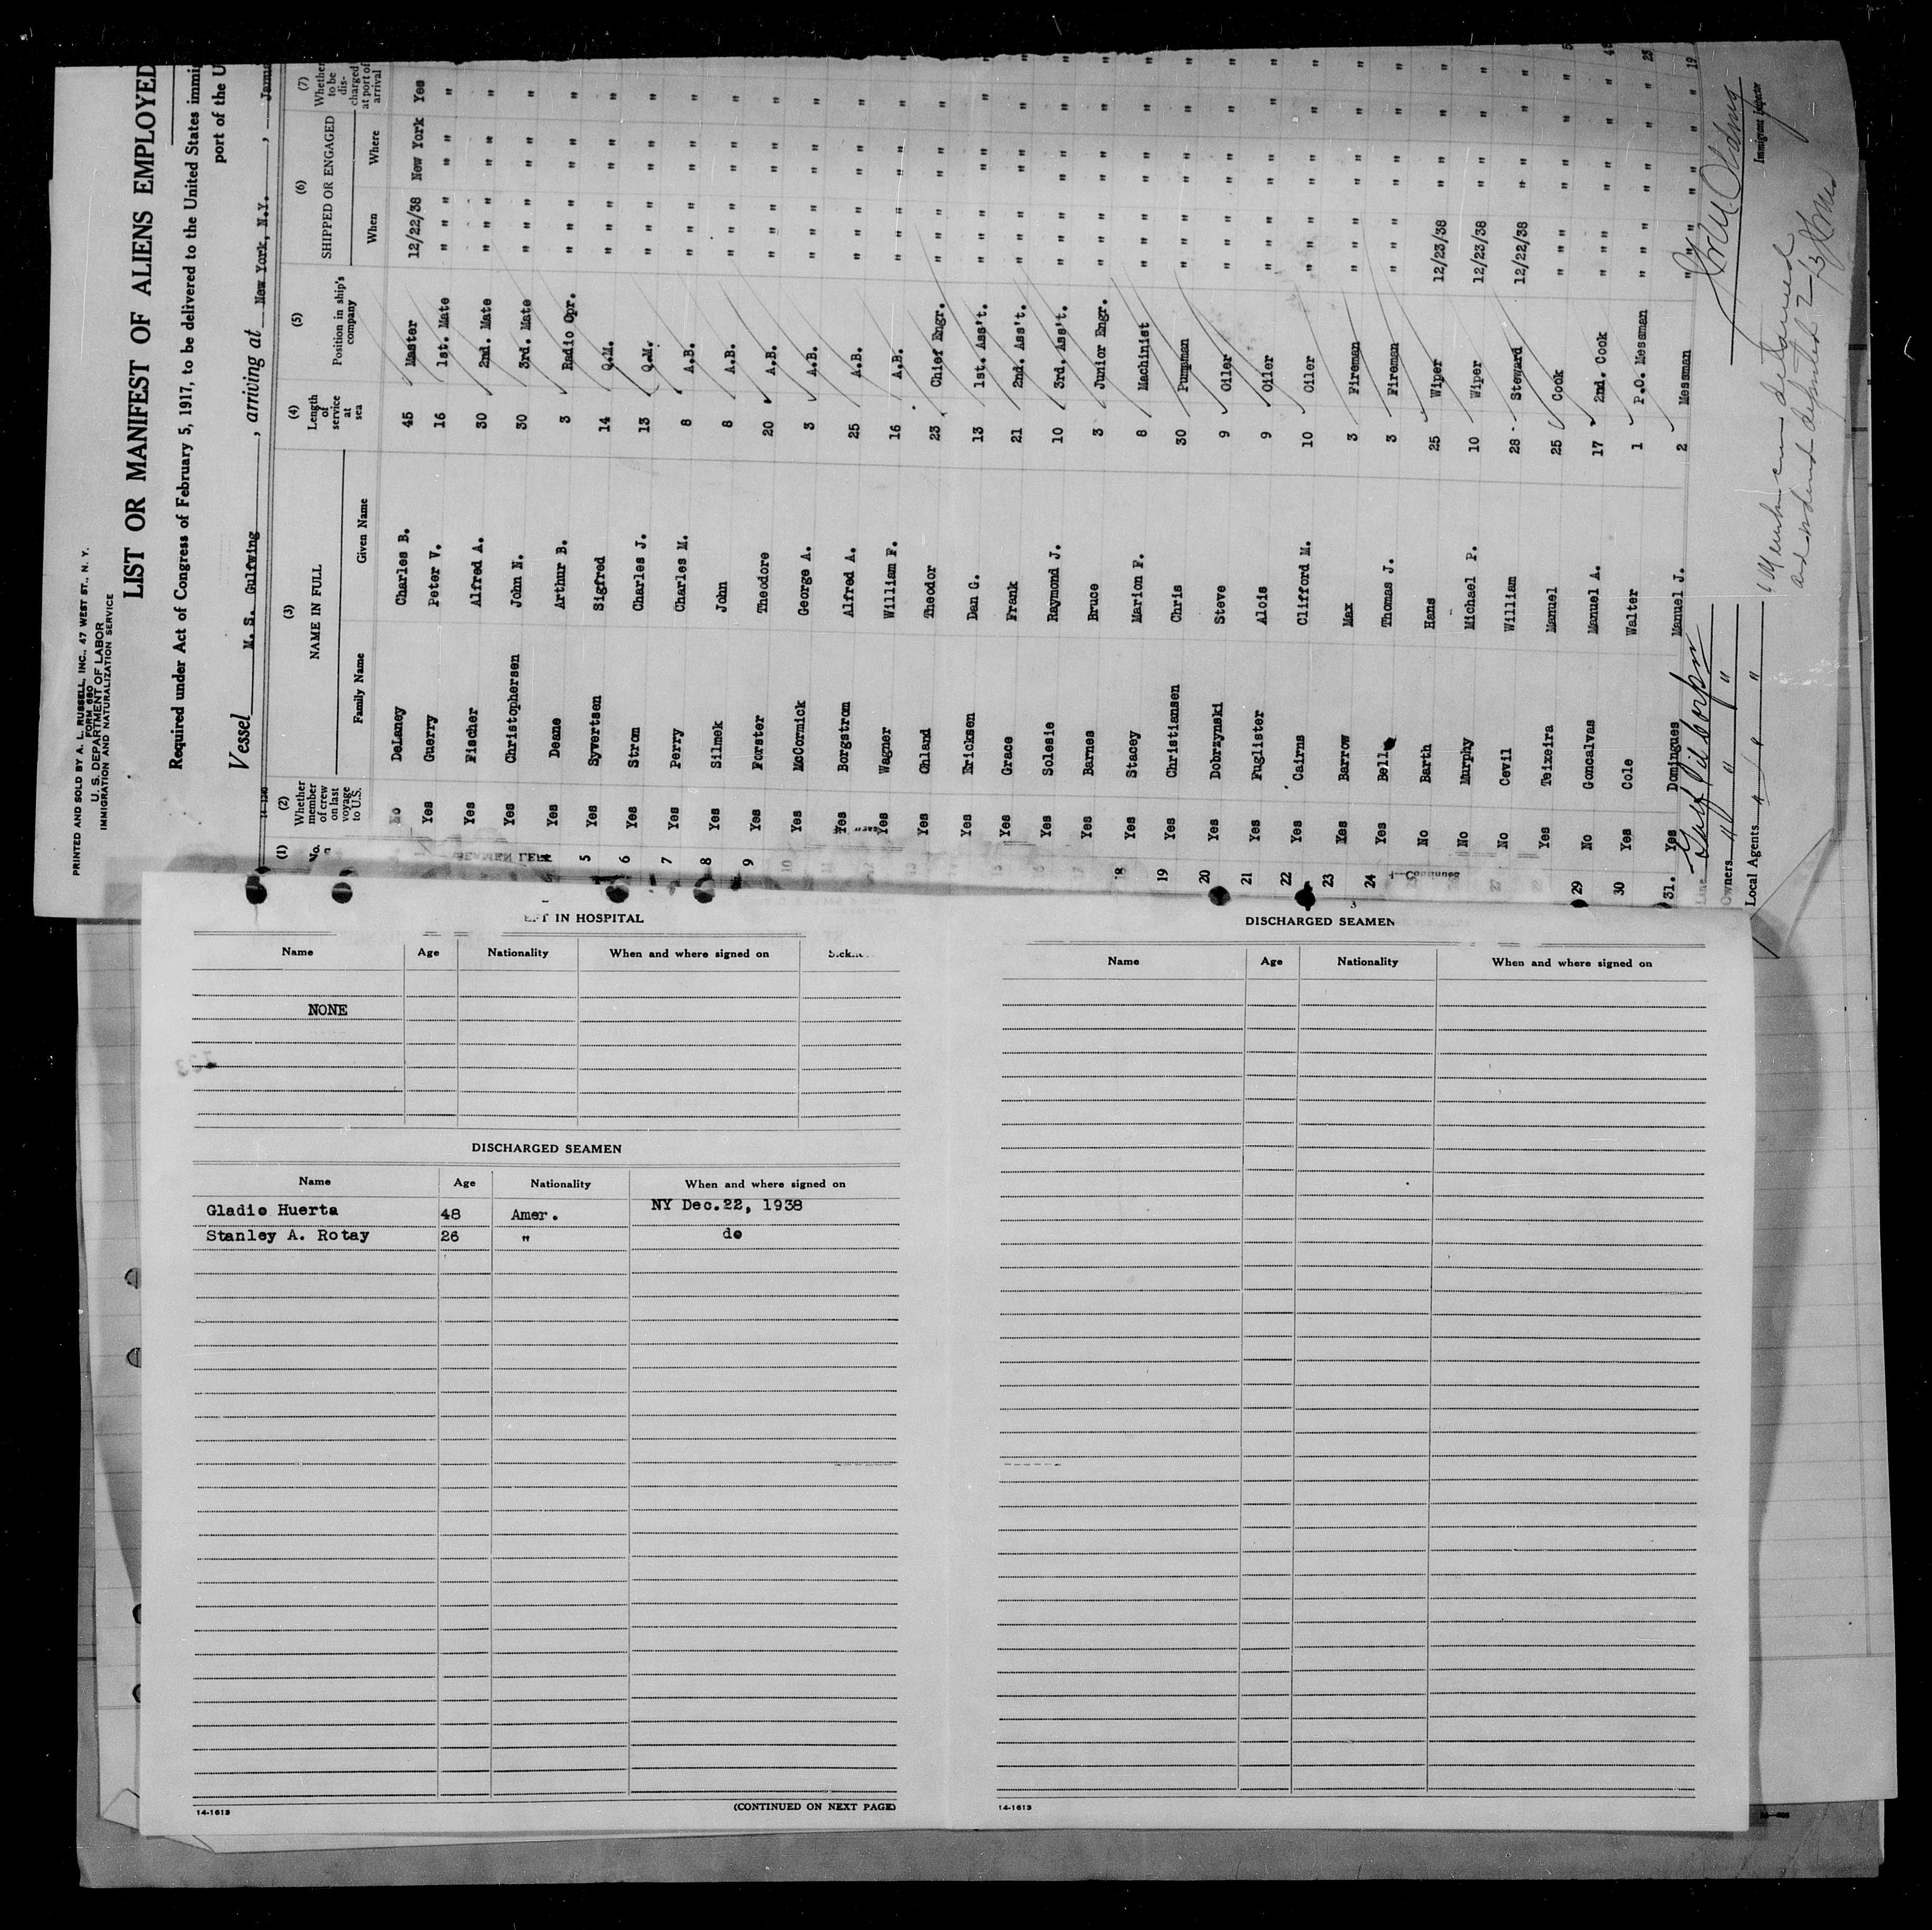 PRINTED AND SOLD BY A. L. RUSSELL, INC., 47 WEST ST., N. Y.
FORM 680
U. S. DEPARTMENT OF LABOR
IMMIGRATION AND NATURALIZATION SERVICE
LIST OR MANIFEST OF ALIENS EMPLOYED
Required under Act of Congress of February 5, 1917, to be delivered to the United States immig
port of the U
Vessel M. S. Gulfwing, arriving at New York, N.Y.,
(1) (2) (3) (4) (5) (6) (7)
No. Whether member of crew on last voyage to U.S. NAME IN FULL Length of service at sea Position in ship's company SHIPPED OR ENGAGED Whether to be discharged at port of arrival
Family Name Given Name When Where
No DeLaney Charles B. 45 Master 12/22/38 New York Yes
Yes Guerry Peter V. 16 1st. Mate " " " " " "
Yes Fischer Alfred A. 30 2nd. Mate " " " " " "
Yes Christophersen John N. 30 3rd. Mate " " " " " "
Yes Deane Arthur B. 3 Radio Opr. " " " " " "
5 Yes Syvertsen Sigfred 14 Q.M. " " " " " "
6 Yes Strom Charles J. 13 Q.M. " " " " " "
7 Yes Perry Charles M. 8 A.B. " " " " " "
8 Yes Silmek John 8 A.B. " " " " " "
9 Yes Forster Theodore 20 A.B. " " " " " "
10 Yes McCormick George A. 3 A.B. " " " " " "
Yes Borgstrom Alfred A. 25 A.B. " " " " " "
Yes Wagner William F. 16 A.B. " " " " " "
Yes Ohland Theodor 23 Chief Engr. " " " " " "
Yes Ericksen Dan G. 13 1st. Ass't. " " " " " "
Yes Grace Frank 21 2nd. Ass't. " " " " " "
Yes Solesie Raymond J. 10 3rd. Ass't. " " " " " "
Yes Barnes Bruce 3 Junior Engr. " " " " " "
18 Yes Stacey Marion F. 8 Machinist " " " " " "
19 Yes Christiansen Chris 30 Pumpman " " " " " "
20 Yes Dobrzynski Steve 9 Oiler " " " " " "
21 Yes Fuglister Alois 9 Oiler " " " " " "
22 Yes Cairns Clifford M. 10 Oiler " " " " " "
23 Yes Barrow Max 3 Fireman " " " " " "
24 Yes Bell Thomas J. 3 Fireman " " " " " "
No Barth Hans 25 Wiper 12/23/38 " " "
No Murphy Michael P. 10 Wiper 12/23/38 " " "
No Cevil William 28 Steward 12/22/38 " " "
Yes Teixeira Manuel 25 Cook " " " " " "
29 No Goncalvas Manuel A. 17 2nd. Cook " " " " " "
30 Yes Cole Walter 1 P.O. Messman " " " " " "
31. Yes Domingues Manuel J. 2 Messman " " " " " "
Line Gulf Oil Corpn
Owners " " "
Local Agents " " "
Immigrant Inspector
LEFT IN HOSPITAL
Name Age Nationality When and where signed on
NONE
DISCHARGED SEAMEN
Name Age Nationality When and where signed on
Gladio Huerta 48 Amer. NY Dec.22, 1938
Stanley A. Rotay 26 " do
14-1613 (CONTINUED ON NEXT PAGE)
3
DISCHARGED SEAMEN
Name Age Nationality When and where signed on
14-1613